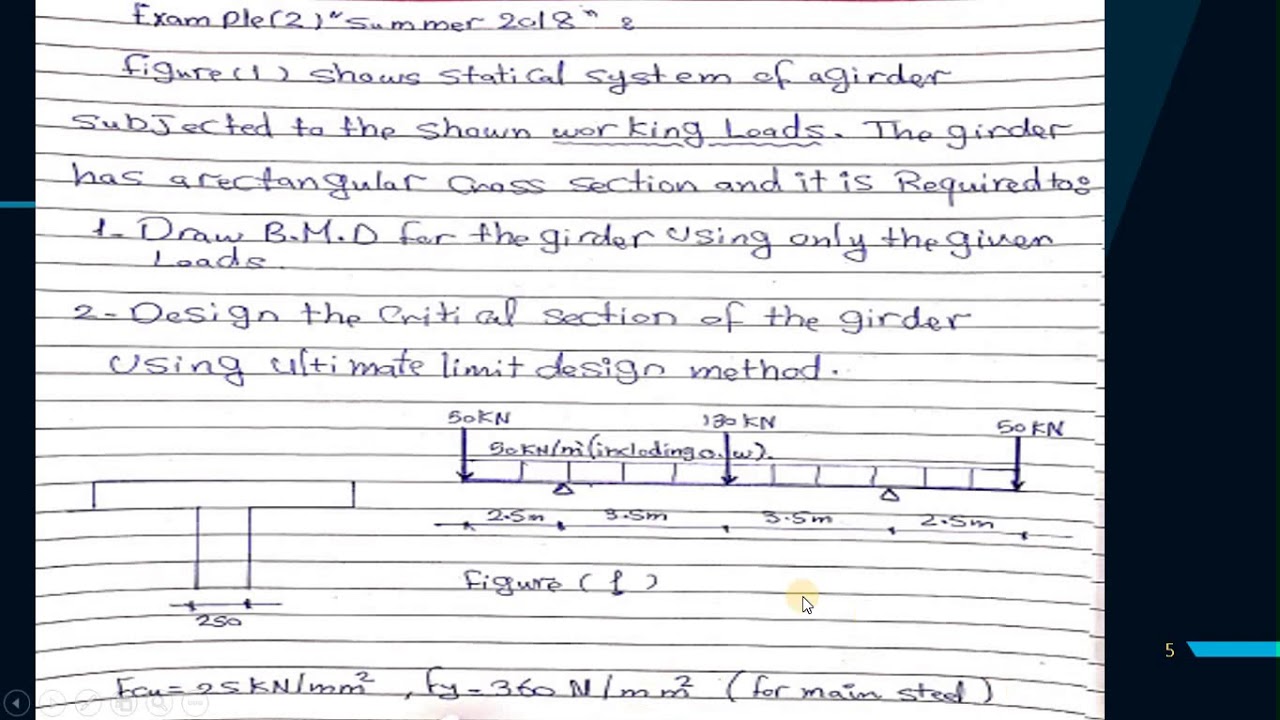 Example(2) "Summer 2018" :
figure(1) shows statical system of a girder
subjected to the shown working Loads. The girder
has a rectangular cross section and it is Required to:
1- Draw B.M.D for the girder using only the given
Loads.
2- Design the critical section of the girder
using ultimate limit design method.
50KN 130KN 50KN
50KN/m (including o.w).
2.5m 3.5m 3.5m 2.5m
figure (1)
250
Fcu = 25KN/mm², fy = 360 N/mm² (for main steel)
5